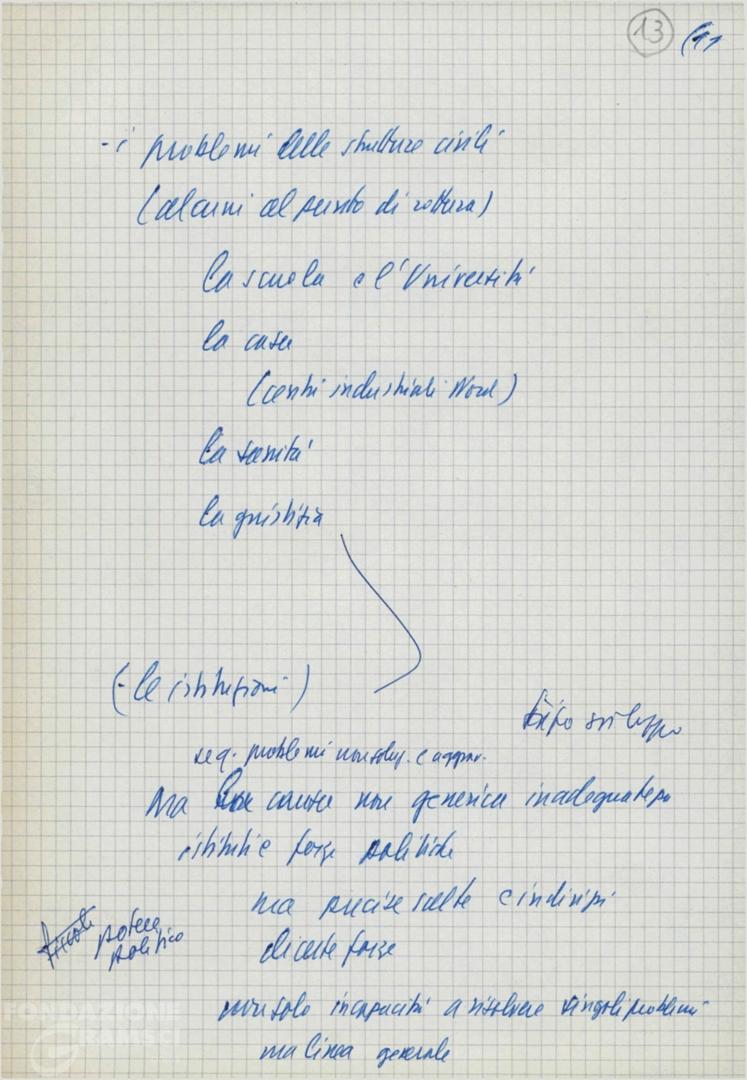 13
- i problemi delle strutture civili
(alcuni al punto di rottura)
la scuola e l'Università
la casa
(centri industriali Nord)
la sanità
la giustizia
(- le istituzioni)
tipo sviluppo
seg. problemi non solu. e aggrav.
Ma causa non generica inadeguatezza
istitut. e forze politiche
ma precise scelte e indirizzi
di certe forze
potere
politico
non solo incapacità a risolvere singoli problemi
ma linea generale
FONDAZIONE
GRAMSCI